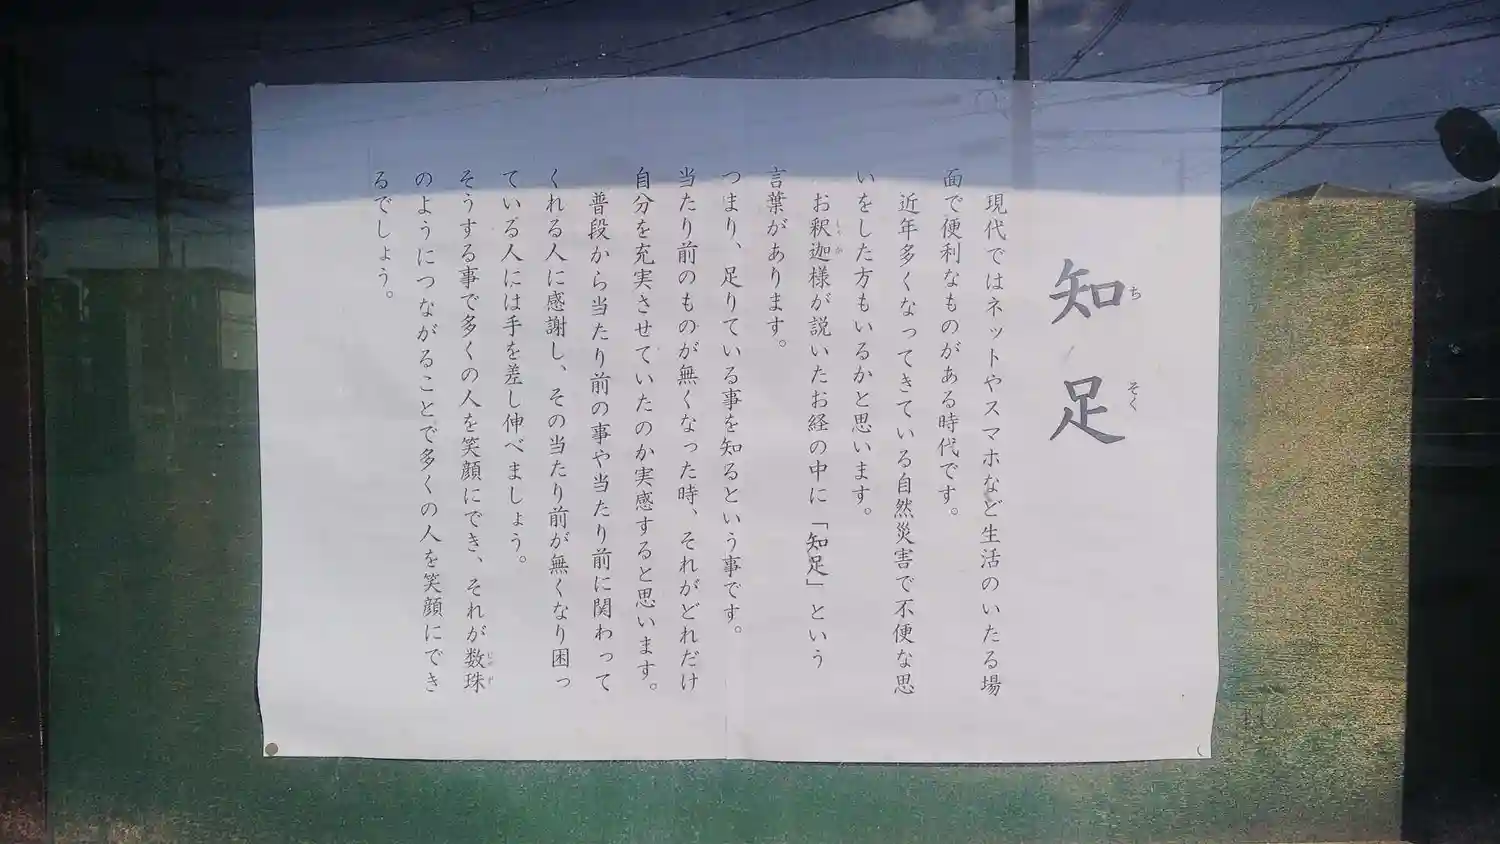 知足
ちそく
現代ではネットやスマホなど生活のいたる場
面で便利なものがある時代です。
近年多くなってきている自然災害で不便な思
いをした方もいるかと思います。
お釈迦様が説いたお経の中に「知足」という
しゃか
言葉があります。
つまり、足りている事を知るという事です。
当たり前のものが無くなった時、それがどれだけ
自分を充実させていたのか実感すると思います。
普段から当たり前の事や当たり前に関わって
くれる人に感謝し、その当たり前が無くなり困っ
ている人には手を差し伸べましょう。
そうする事で多くの人を笑顔にでき、それが数珠
じゅず
のようにつながることで多くの人を笑顔にでき
るでしょう。